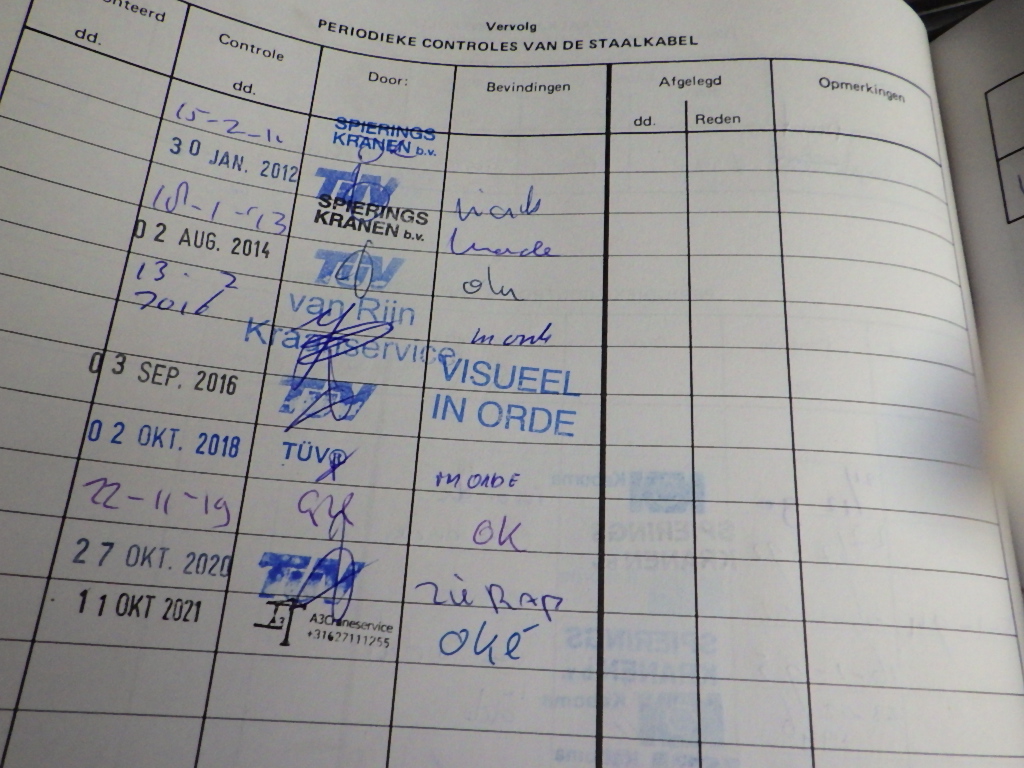 Vervolg
PERIODIEKE CONTROLES VAN DE STAALKABEL
nteerd
dd.
Controle
dd.
Door:
Bevindingen
Afgelegd
dd.
Reden
Opmerkingen
15-2-11
SPIERINGS
KRANEN b.v.
30 JAN. 2012
TÜV
SPIERINGS
KRANEN b.v.
02 AUG. 2014
TÜV
13-2
2016
van Rijn
Kraanservice
03 SEP. 2016
TÜV
VISUEEL
IN ORDE
02 OKT. 2018
TÜV®
IN ORDE
22-11-19
OK
27 OKT. 2020
TÜV
zie RAP
11 OKT 2021
A3
A3Craneservice
+31627111255
Oké